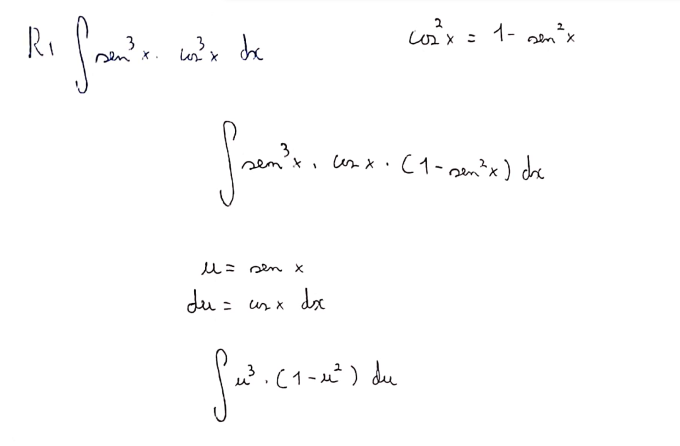 R1 ∫ sen³x · cos³x dx
cos²x = 1 - sen²x
∫ sen³x · cos x · (1 - sen²x) dx
u = sen x
du = cos x dx
∫ u³ · (1 - u²) du